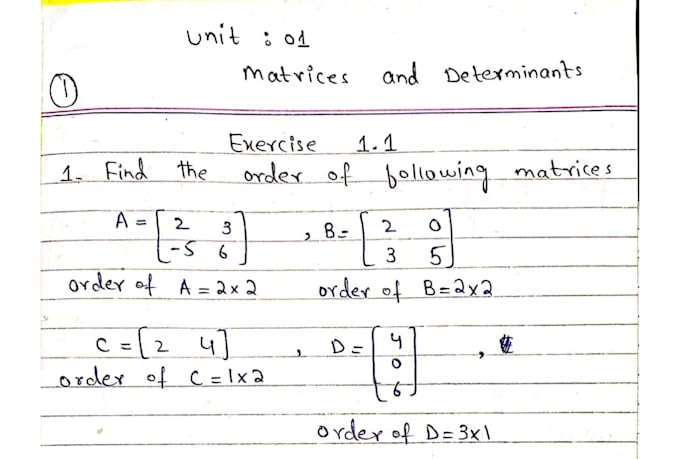 Unit : 01
Matrices and Determinants
1
Exercise 1.1
1. Find the order of following matrices
A = [ 2 3 , B = [ 2 0
-5 6 ] 3 5 ]
order of A = 2x2 order of B = 2x2
C = [ 2 4 ] , D = [ 4 ,
0
6 ]
order of C = 1x2
order of D = 3x1